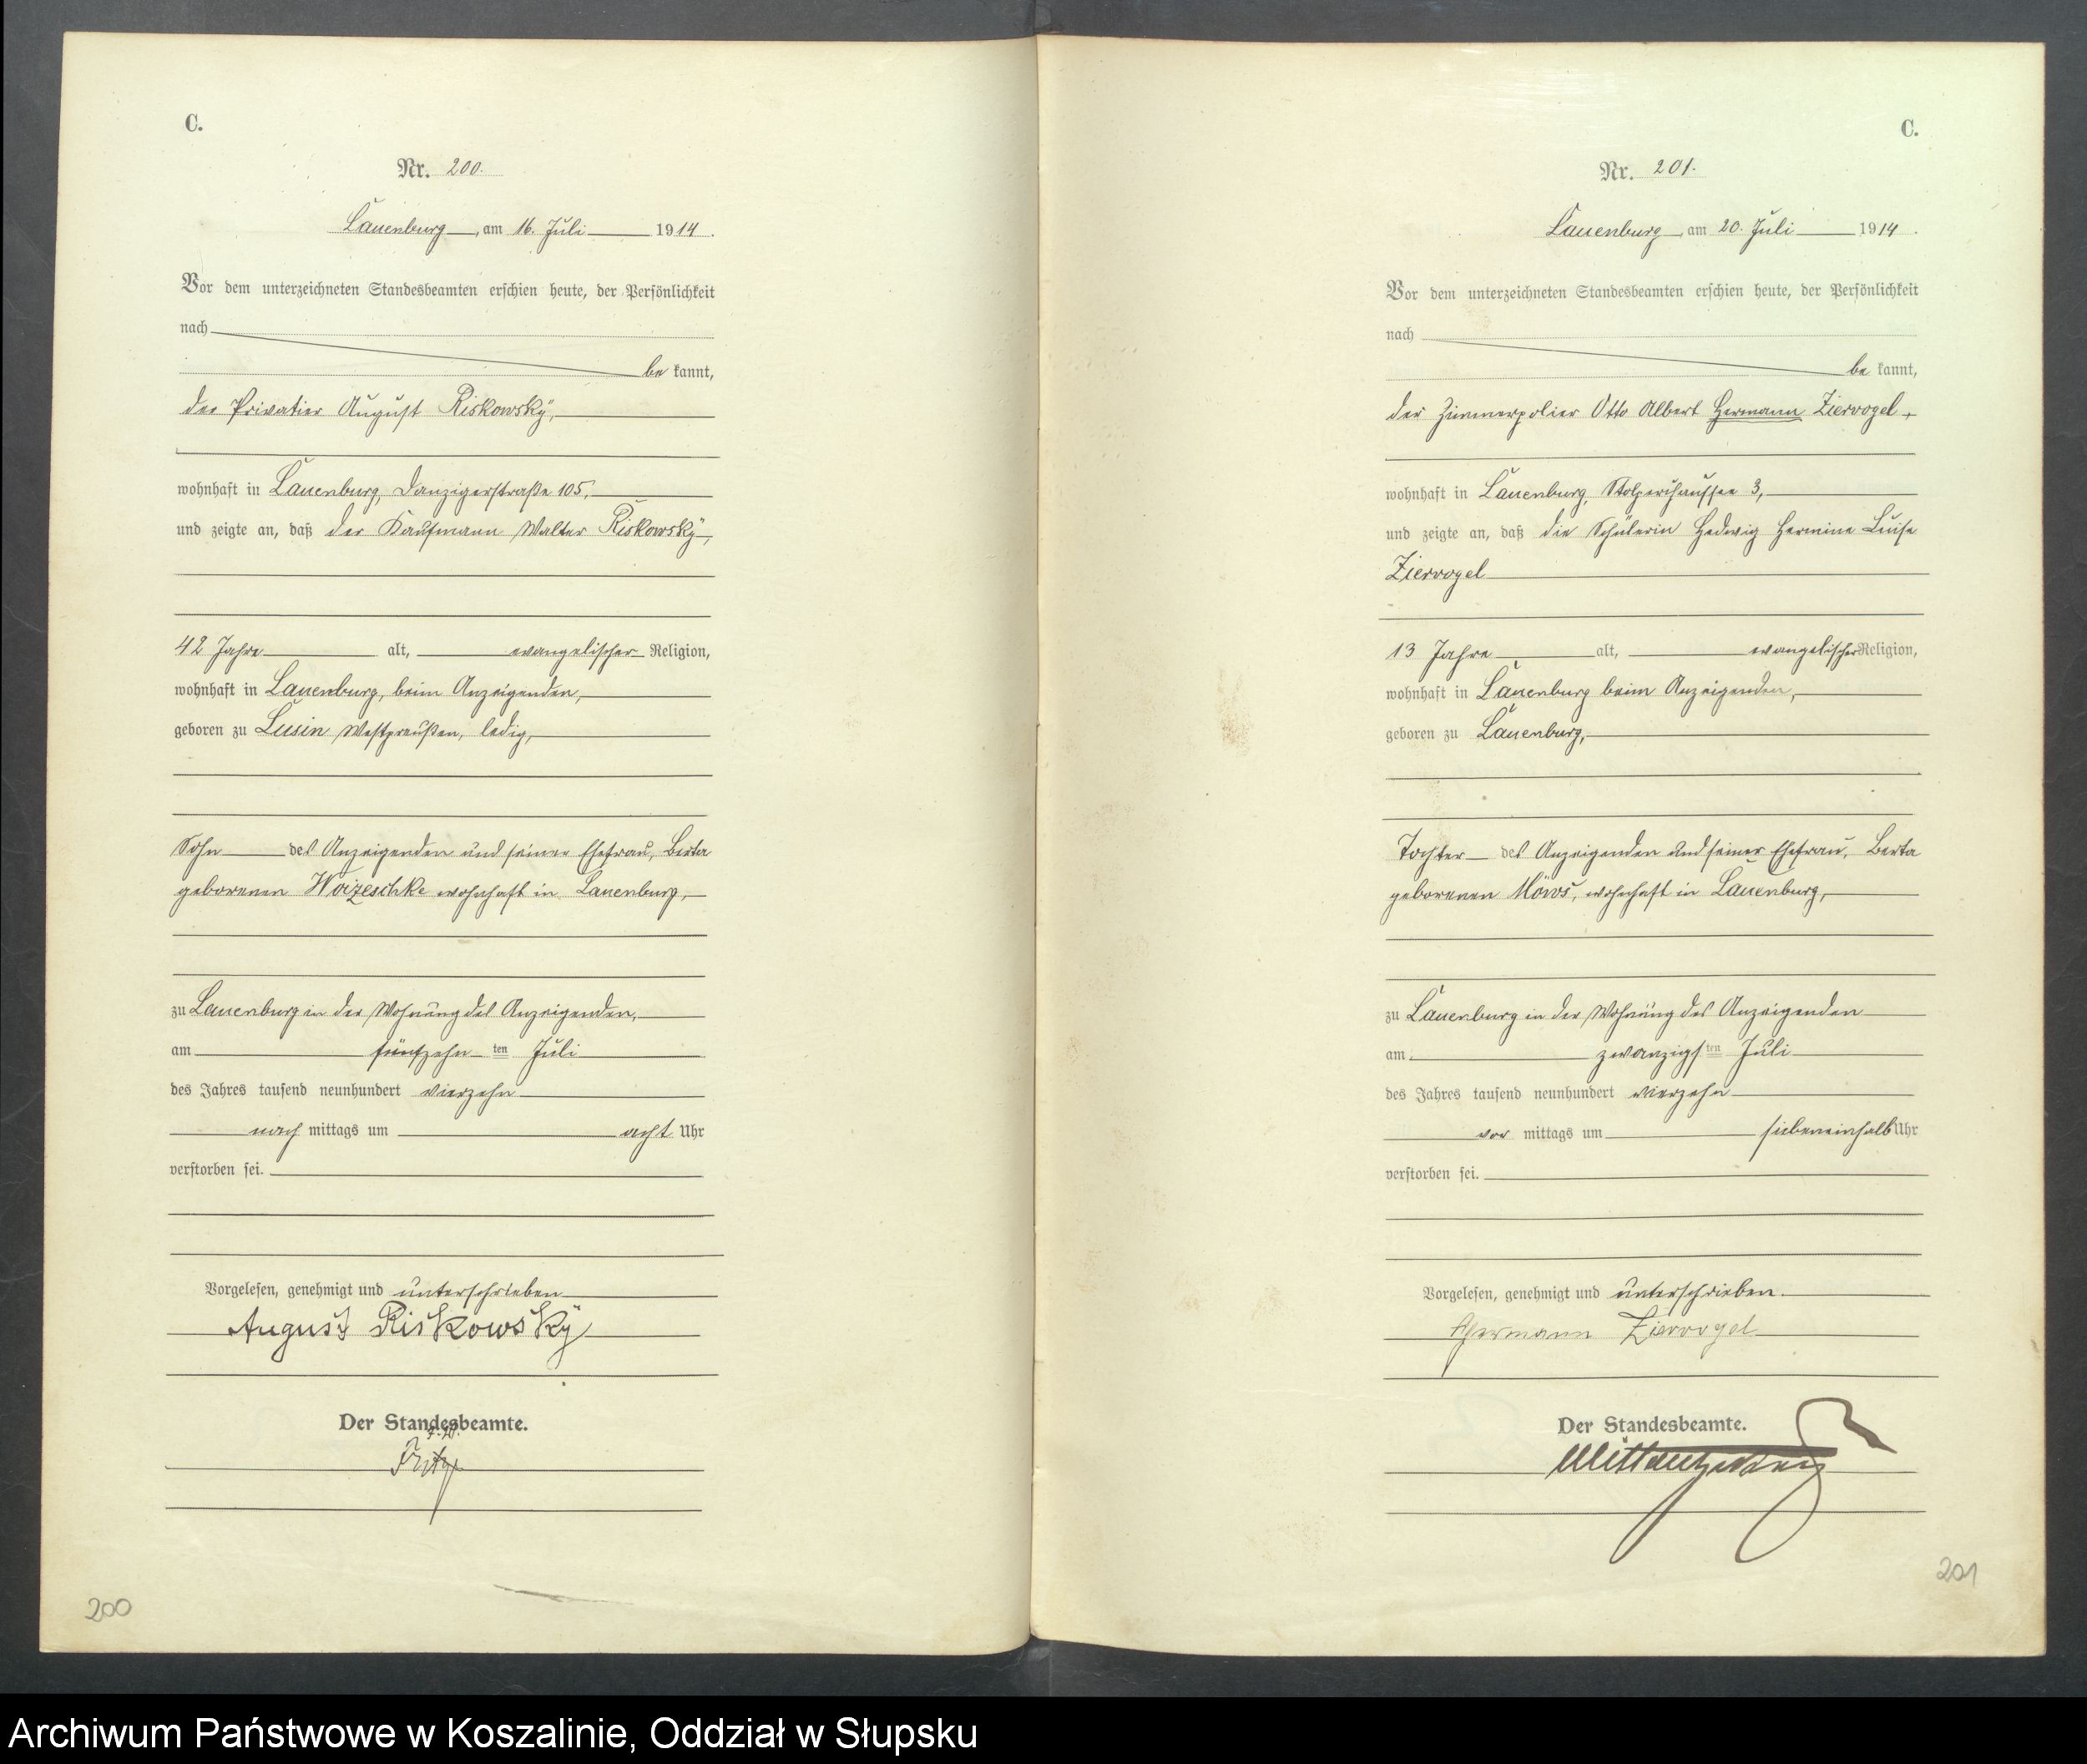 C.
Nr. 200.
Lauenburg, am 16. Juli 1914.
Vor dem unterzeichneten Standesbeamten erschien heute, der Persönlichkeit
nach
be kannt,
der Privatier August Riskowsky,
wohnhaft in Lauenburg, Danzigerstraße 105,
und zeigte an, daß der Kaufmann Walter Riskowsky,
42 Jahre alt, evangelischer Religion,
wohnhaft in Lauenburg, beim Anzeigenden,
geboren zu Lusin Westpreußen, ledig,
Sohn des Anzeigenden und seiner Ehefrau, Berta
geborenen Woizeschke wohnhaft in Lauenburg,
zu Lauenburg in der Wohnung des Anzeigenden,
am fünfzehn ten Juli
des Jahres tausend neunhundert vierzehn
nach mittags um acht Uhr
verstorben sei.
Vorgelesen, genehmigt und unterschrieben
August Riskowsky
Der Standesbeamte.
200
C.
Nr. 201.
Lauenburg, am 20. Juli 1914.
Vor dem unterzeichneten Standesbeamten erschien heute, der Persönlichkeit
nach
be kannt,
der Zimmerpolier Otto Albert Hermann Ziervogel,
wohnhaft in Lauenburg, Stolperchaussee 3,
und zeigte an, daß die Schülerin Hedwig Hermine Luise
Ziervogel
13 Jahre alt, evangelischer Religion,
wohnhaft in Lauenburg beim Anzeigenden,
geboren zu Lauenburg,
Tochter des Anzeigenden und seiner Ehefrau, Berta
geborenen Möws, wohnhaft in Lauenburg,
zu Lauenburg in der Wohnung des Anzeigenden
am zwanzigs ten Juli
des Jahres tausend neunhundert vierzehn
vor mittags um siebeneinhalb Uhr
verstorben sei.
Vorgelesen, genehmigt und unterschrieben.
Hermann Ziervogel
Der Standesbeamte.
201
Archiwum Państwowe w Koszalinie, Oddział w Słupsku